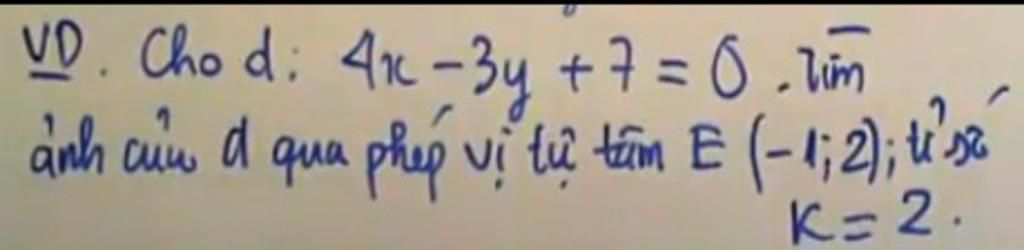 VD. Cho d: 4x - 3y + 7 = 0. Tìm
ảnh của d qua phép vị tự tâm E (-1; 2); tỉ số
K = 2.